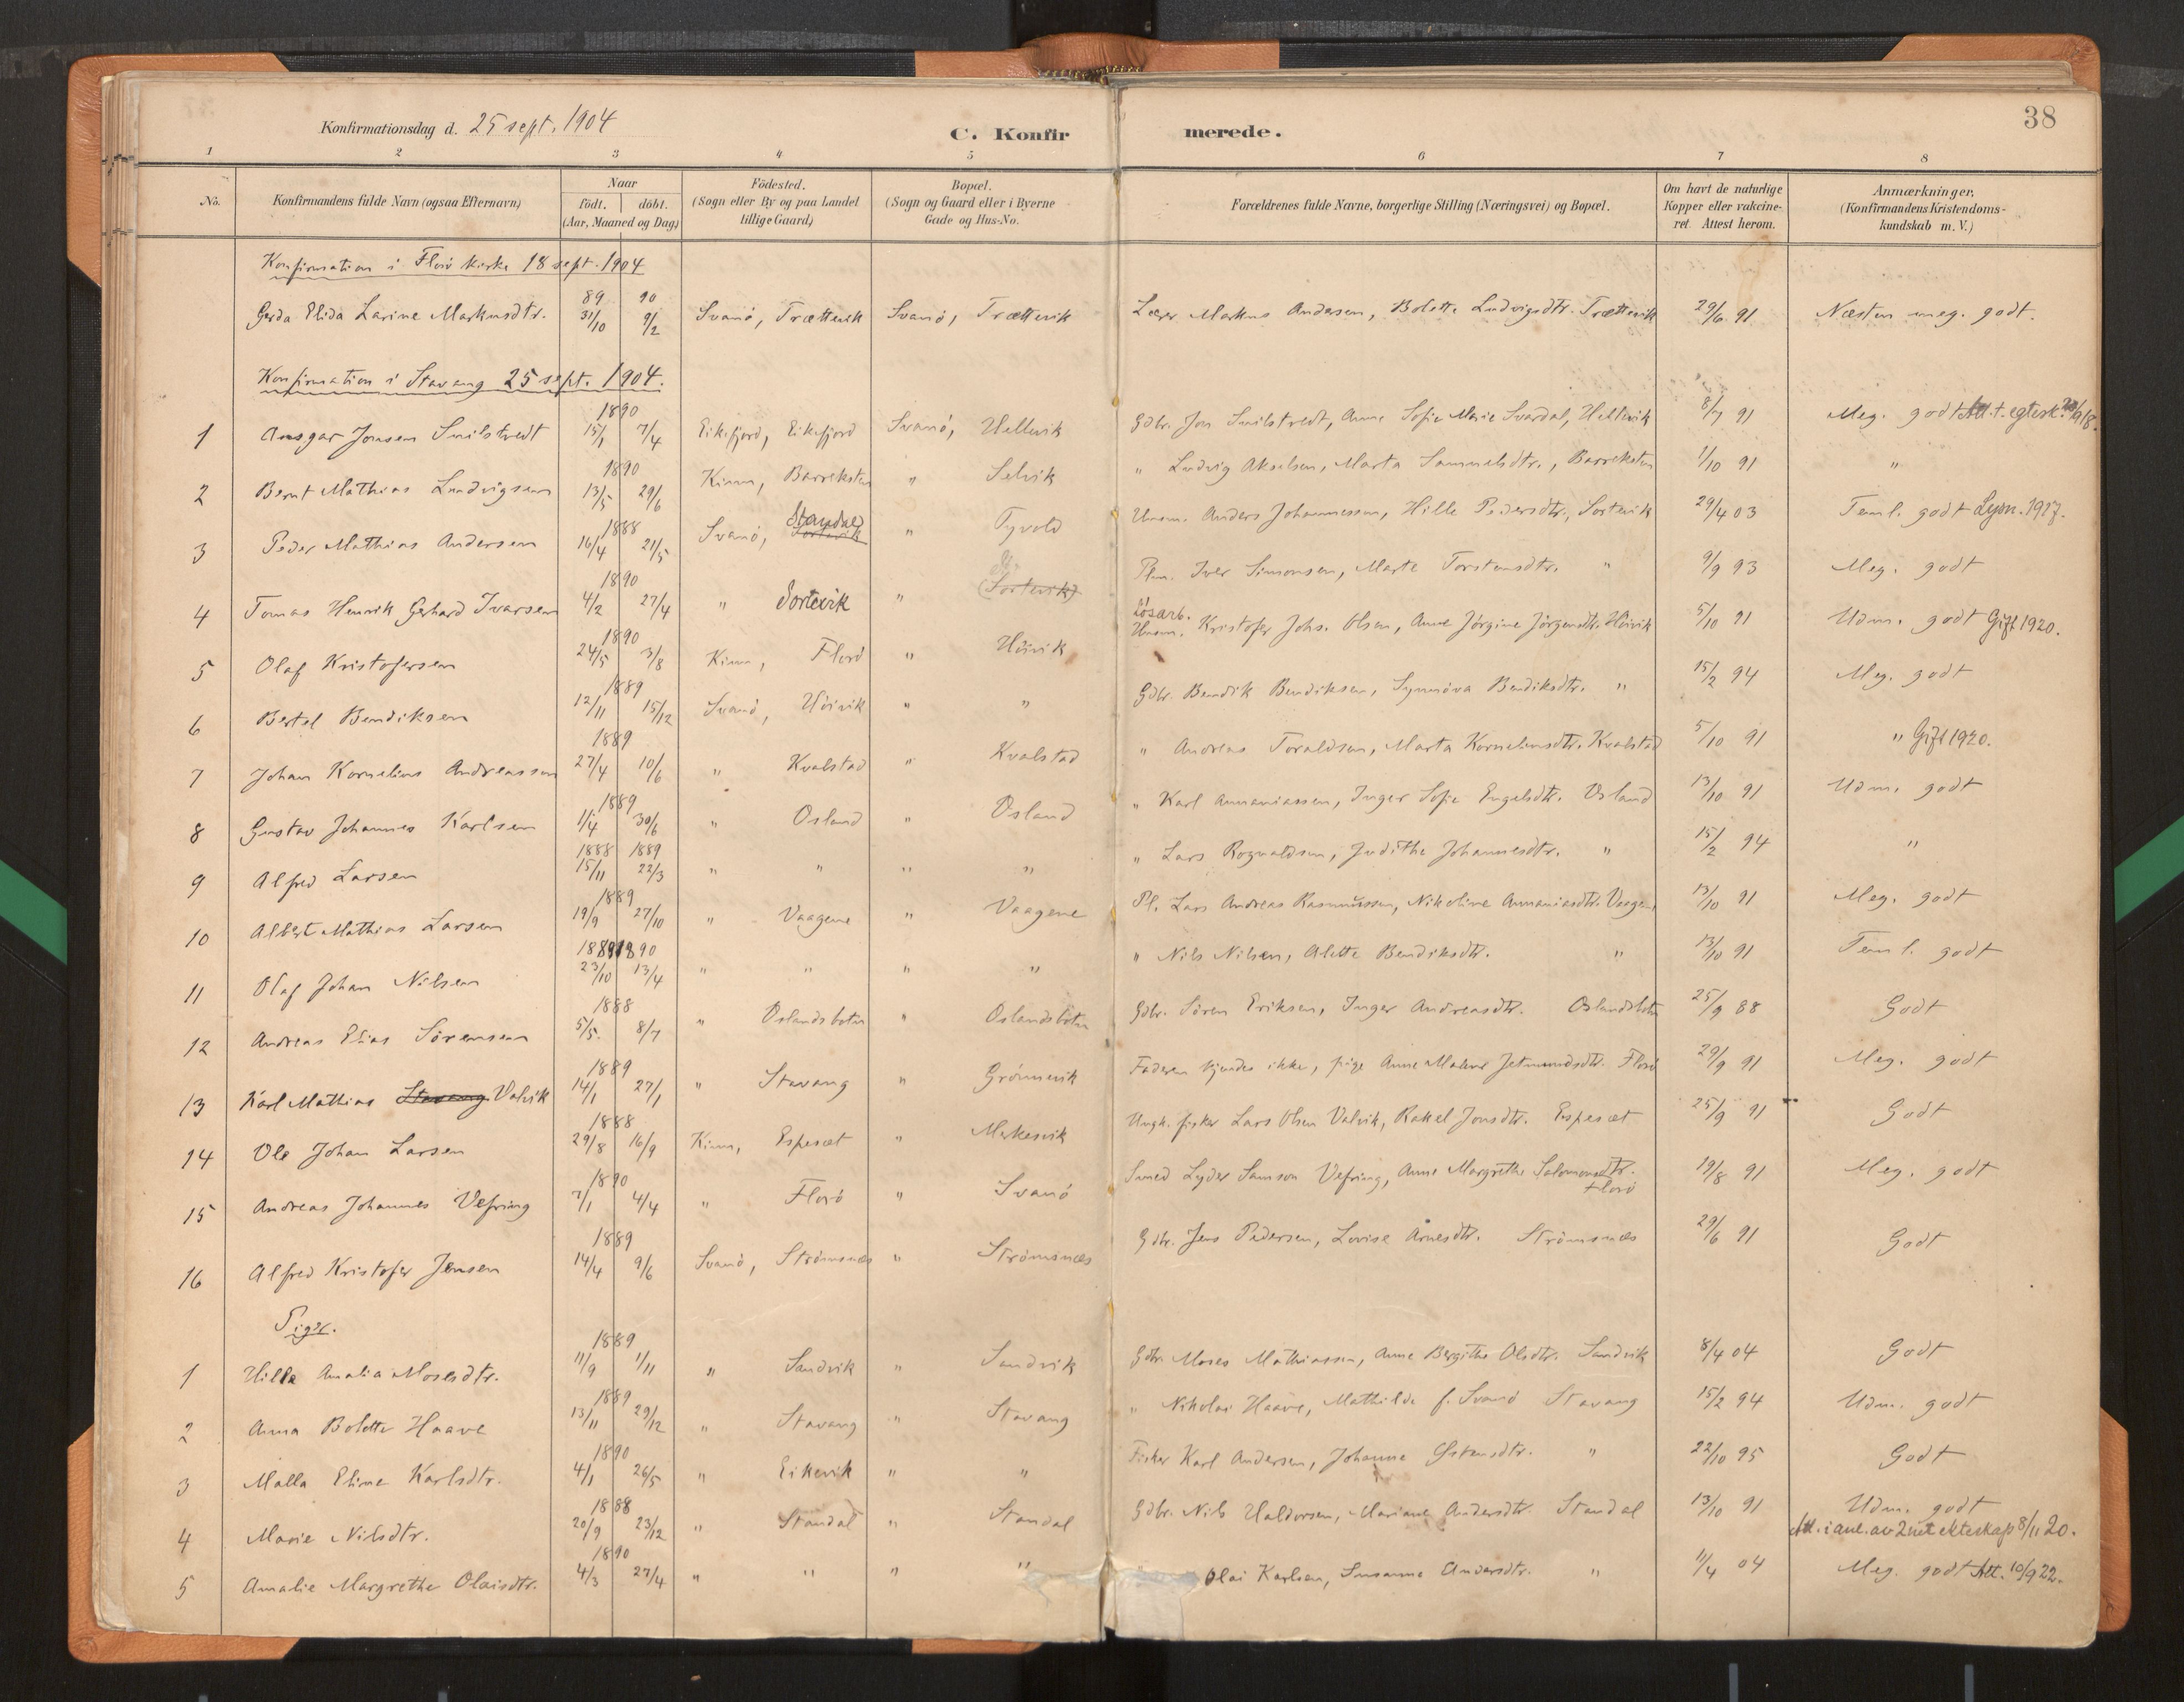 38
Konfirmationsdag d. 25 sept. 1904
C. Konfirmerede.
1 2 3 4 5 6 7 8
No. Konfirmandens fulde Navn (ogsaa Efternavn) Naar født. døbt. (Aar, Maaned og Dag) Födested. (Sogn eller By og paa Landet tillige Gaard) Bopæl. (Sogn og Gaard eller i Byerne Gade og Hus-No. Forældrenes fulde Navne, borgerlige Stilling (Næringsvei) og Bopæl. Om havt de naturlige Kopper eller vakcineret. Attest herom. Anmærkninger. (Konfirmandens Kristendomskundskab m. V.)
Konfirmation i Florö kirke 18 sept. 1904
Gerda Elida Larine Markusdtr. 89 31/10 90 9/2 Svanö, Trættevik Svanö, Trættevik Lærer Markus Andersen, Bolette Ludvigsdtr. Trættevik 29/6 91 Næsten meg. godt.
Konfirmation i Stavang 25 sept. 1904.
1 Ansgar Jonsen Smilstvedt 1890 15/1 7/4 Eikefjord, Eikefjord Svanö, Hellevik Gdbr. Jon Smilstvedt, Anne Sofie Marie Svardal, Hellevik 8/7 91 Meg. godt Att. t. egtesk. 28/9 18.
2 Bernt Mathias Ludvigsen 1890 13/5 29/6 Kinn, Barreksten " Selvik " Ludvig Akselsen, Marta Samuelsdtr., Barreksten 1/10 91 "
3 Peder Mathias Andersen 1888 16/4 21/5 Svanö, Sortevik Standal " Tyvold Unm. Anders Johannessen, Hille Pedersdtr., Sortevik 29/4 03 Teml. godt Lysn. 1917.
4 Tomas Henrik Gerhard Ivarsen 1890 4/2 27/4 " Sortevik " (Sortevik) Plm. Iver Simonsen, Marte Torstensdtr. " 9/9 93 Meg. godt
5 Olaf Kristofersen 1890 24/5 3/8 Kinn, Florö " Höivik Lösarb. Kristofer Johs. Olsen, Anne Jörgine Jörgensdtr. Höivik 5/10 91 Udm. godt Gift 1920.
6 Bertel Bendiksen 1889 12/11 15/12 Svanö, Höivik " " Gdbr. Bendik Bendiksen, Synnöva Bendiksdtr. " 15/2 94 Meg. godt
7 Johan Kornelius Andreassen 1889 27/4 10/6 " Kvalstad " Kvalstad " Andreas Toraldsen, Marta Korneliusdtr. Kvalstad 5/10 91 " Gift 1920.
8 Gustav Johannes Karlsen 1889 1/4 30/6 " Osland " Osland " Karl Annaniassen, Inger Sofie Engelsdtr. Osland 13/10 91 Udm. godt
9 Alfred Larsen 1888 15/11 1889 22/3 " " " " " Lars Rognaldsen, Judithe Johannesdtr. " 15/2 94 "
10 Albert Mathias Larsen 1889 19/9 27/10 " Vaagene " Vaagene Pl. Lars Andreas Rasmussen, Nikoline Annaniasdtr. Vaagene 13/10 91 Meg. godt
11 Olaf Johan Nilsen 1889 23/10 1890 13/4 " " " " " Nils Nilsen, Alette Bendiksdtr. " 13/10 91 Teml. godt
12 Andreas Elias Sörensen 1888 5/5. 8/7 " Oslandsbotn " Oslandsbotn Gdbr. Sören Eriksen, Inger Andreasdtr. Oslandsbotn 25/9 88 Godt
13 Karl Mathias Stavang Valvik 1889 14/1 27/1 " Stavang " Grönnevik Faderen kjendes ikke, pige Anne Malene Jetmundsdtr. Florö 29/9 91 Meg. godt
14 Ole Johan Larsen 1888 29/8 16/9 Kinn, Espeset " Merkesvik Ungk. fisker Lars Olsen Valvik, Rakel Jonsdtr. Espeset 25/9 91 Godt
15 Andreas Johannes Vefring 1890 7/1 4/4 " Florö " Svanö Smed Lyder Samson Vefring, Anne Margrethe Salomonsdtr. Florö 19/8 91 Meg. godt
16 Alfred Kristofer Jensen 1889 14/4 9/6 Svanö, Strömsnæs " Strömsnæs Gdbr. Jens Pedersen, Lovise Arnesdtr. Strömsnæs 29/6 91 Godt
Piger.
1 Hilla Amalia Mosesdtr. 1889 11/9 1/11 " Sandvik " Sandvik Gdbr. Moses Mathiassen, Anne Bergithe Olsdtr. Sandvik 8/4 04 Godt
2 Anna Bolette Haave 1889 13/11 29/12 " Stavang " Stavang " Nikolai Haave, Mathilde f. Svanö Stavang 15/2 94 Udm. godt
3 Malla Eline Karlsdtr. 1890 4/1 26/5 " Eikevik " " Fisker Karl Andersen, Johanne Östensdtr. " 22/10 95 Godt
4 Marie Nilsdtr. 1888 20/9 23/12 " Standal " Standal Gdbr. Nils Haldorsen, Mariane Andersdtr. Standal 13/10 91 Udm. godt Att. i anl. av 2net ekteskap 8/11 20.
5 Amalie Margrethe Olaisdtr. 1890 4/3 27/4 " " " " " Olai Karlsen, Susanne Andersdtr. " 11/4 04 Meg. godt Att. 10/9 22.